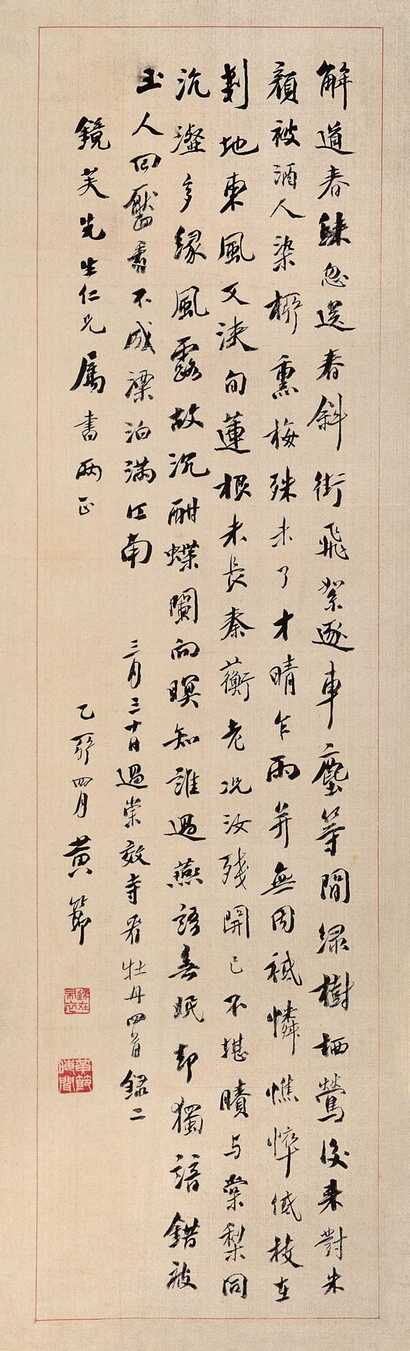 解道春忽送春斜街飛絮逐車塵等閒綠樹栖鶯後來對朱
顏被酒人染柳熏梅殊未了才晴乍雨并無因祗憐憔悴低枝在
剗地東風又浹旬蓮根未長秦蘅老況汝殘開已不堪賸与棠梨同
沆瀣多緣風露故沉酣蝶闌向暝知誰過燕語無眠却獨諳錯被
玉人回靨看不成漂泊滿江南
三月三十日過崇效寺看牡丹四首錄二
鏡芙先生仁兄屬書両正
乙卯四月黃節